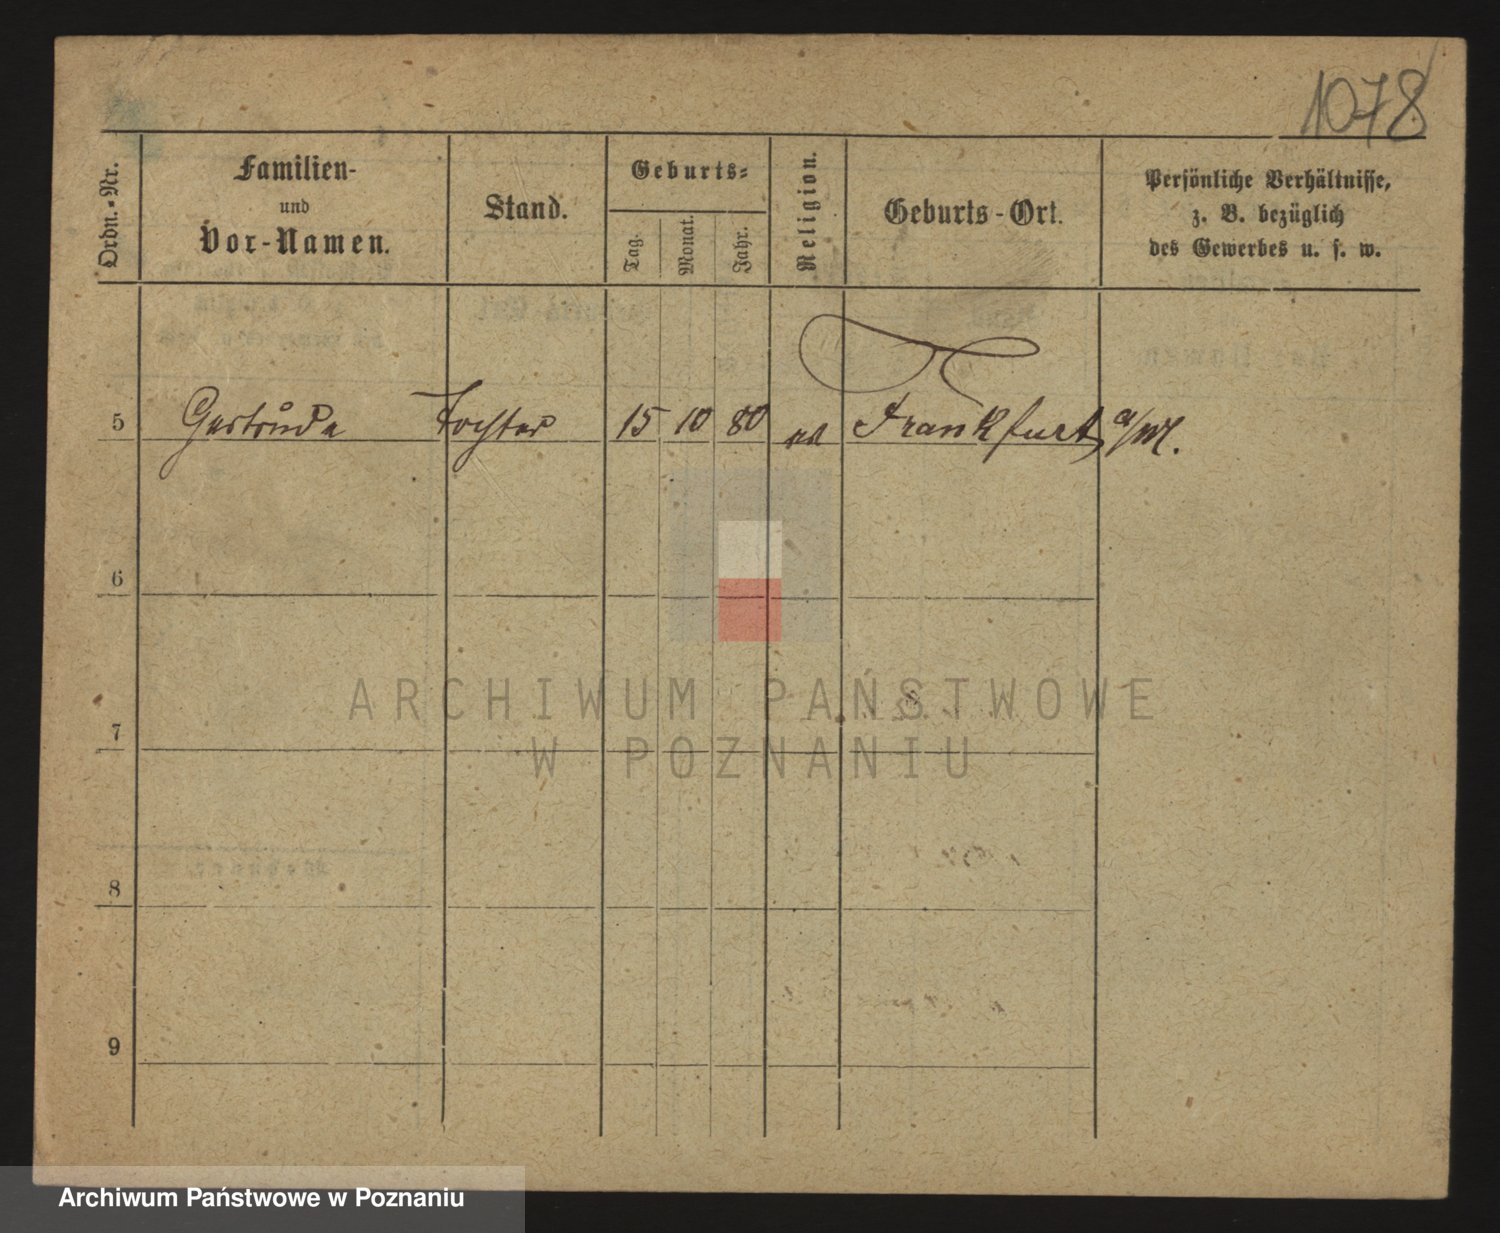 1078
Ordn.-Nr.
Familien-
und
Vor-Namen.
Stand.
Geburts-
Tag.
Monat.
Jahr.
Religion.
Geburts-Ort.
Persönliche Verhältnisse,
z. B. bezüglich
des Gewerbes u. s. w.
5 Gertruda Tochter 15 10 80 Frankfurt a/M.
6
ARCHIWUM PAŃSTWOWE
7
W POZNANIU
8
9
Archiwum Państwowe w Poznaniu